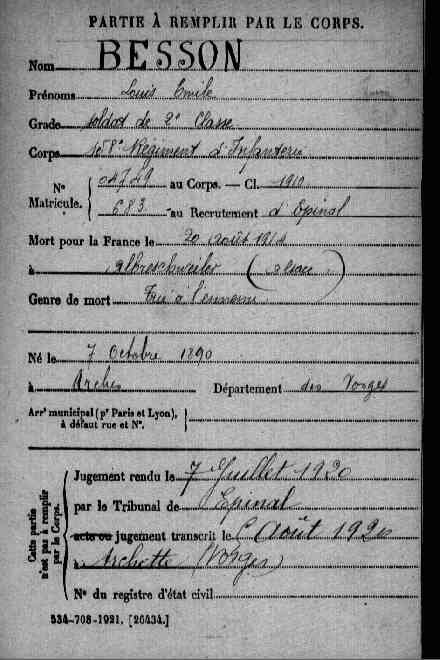 PARTIE À REMPLIR PAR LE CORPS.
Nom BESSON
Prénoms Louis Emile
Grade soldat de 2e Classe
Corps 158e Régiment d'Infanterie
N° Matricule. 04749 au Corps. — Cl. 1910
683 au Recrutement d'Epinal
Mort pour la France le 20 août 1914
à Abreschweiler (Alsace)
Genre de mort Tué à l'ennemi
Né le 7 Octobre 1890
à Arches Département des Vosges
Arrt municipal (pr Paris et Lyon), à défaut rue et N°.
Cette partie n'est pas à remplir par le Corps.
Jugement rendu le 7 Juillet 1920
par le Tribunal de Epinal
acte ou jugement transcrit le Août 1920
à Archette (Vosges)
N° du registre d'état civil
534-708-1921. [26434.]